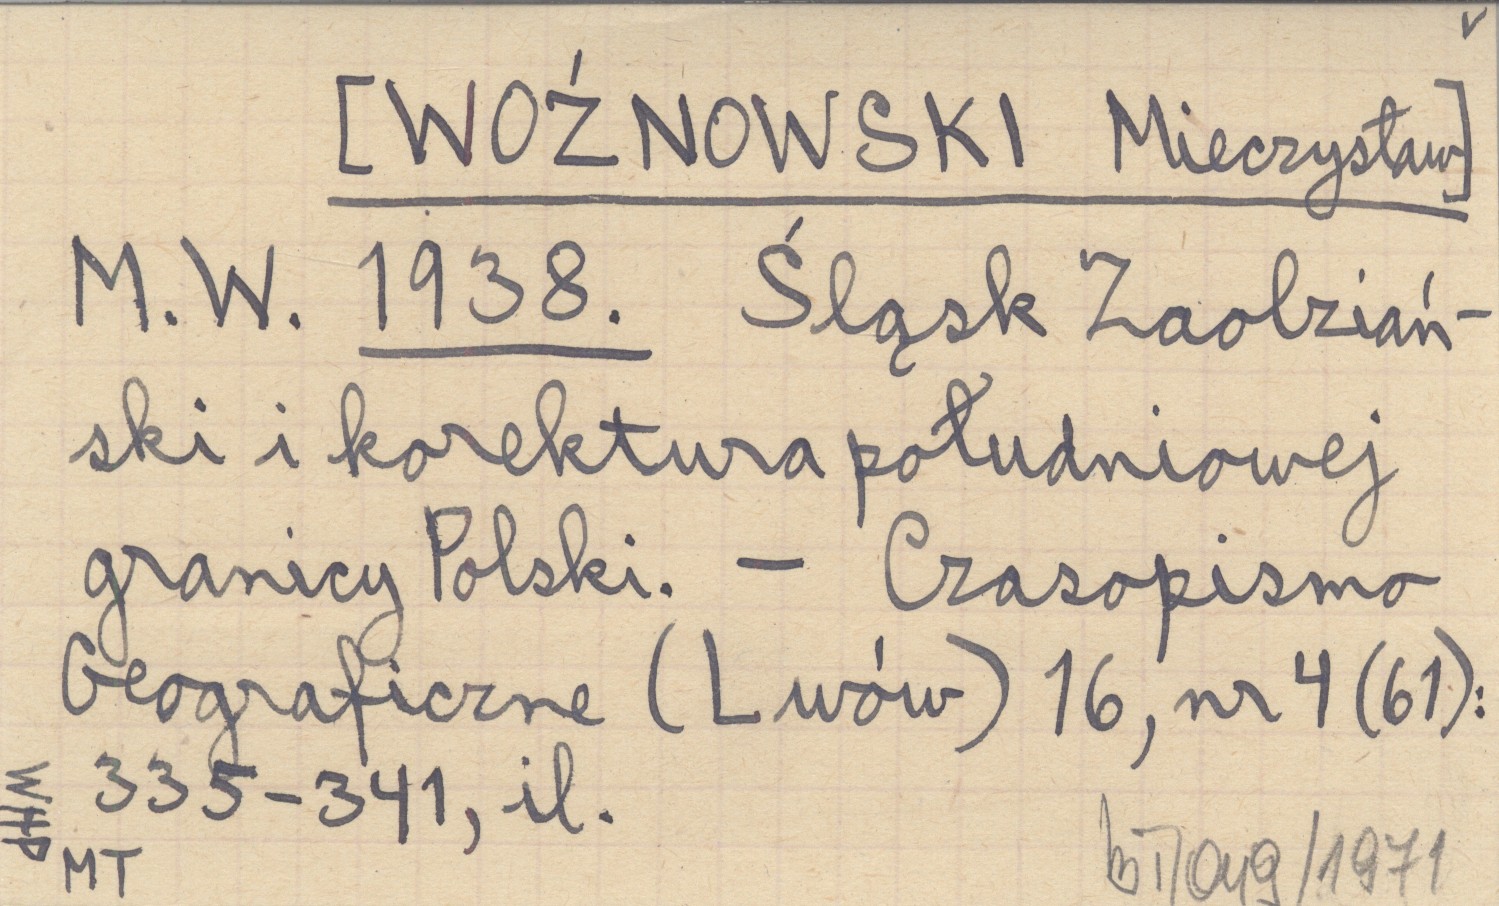 v
[WOŹNOWSKI Mieczysław]
M.W. 1938. Śląsk Zaolziań-
ski i korektura południowej
granicy Polski. – Czasopismo
Geograficzne (Lwów) 16, nr 4 (61):
335-341, il.
WHP
MT
/1971